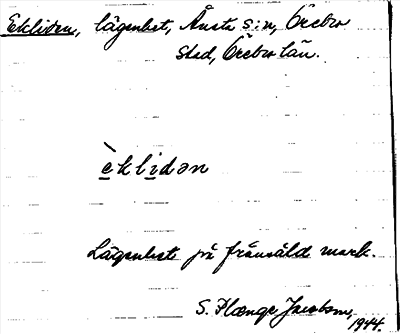 Ekliden, lägenhet, Ånsta s:n, Örebro
stad, Örebro län.
è̱kli̱dən
Lägenhet på frånsåld mark.
S. Plænge Jacobson,
1944.